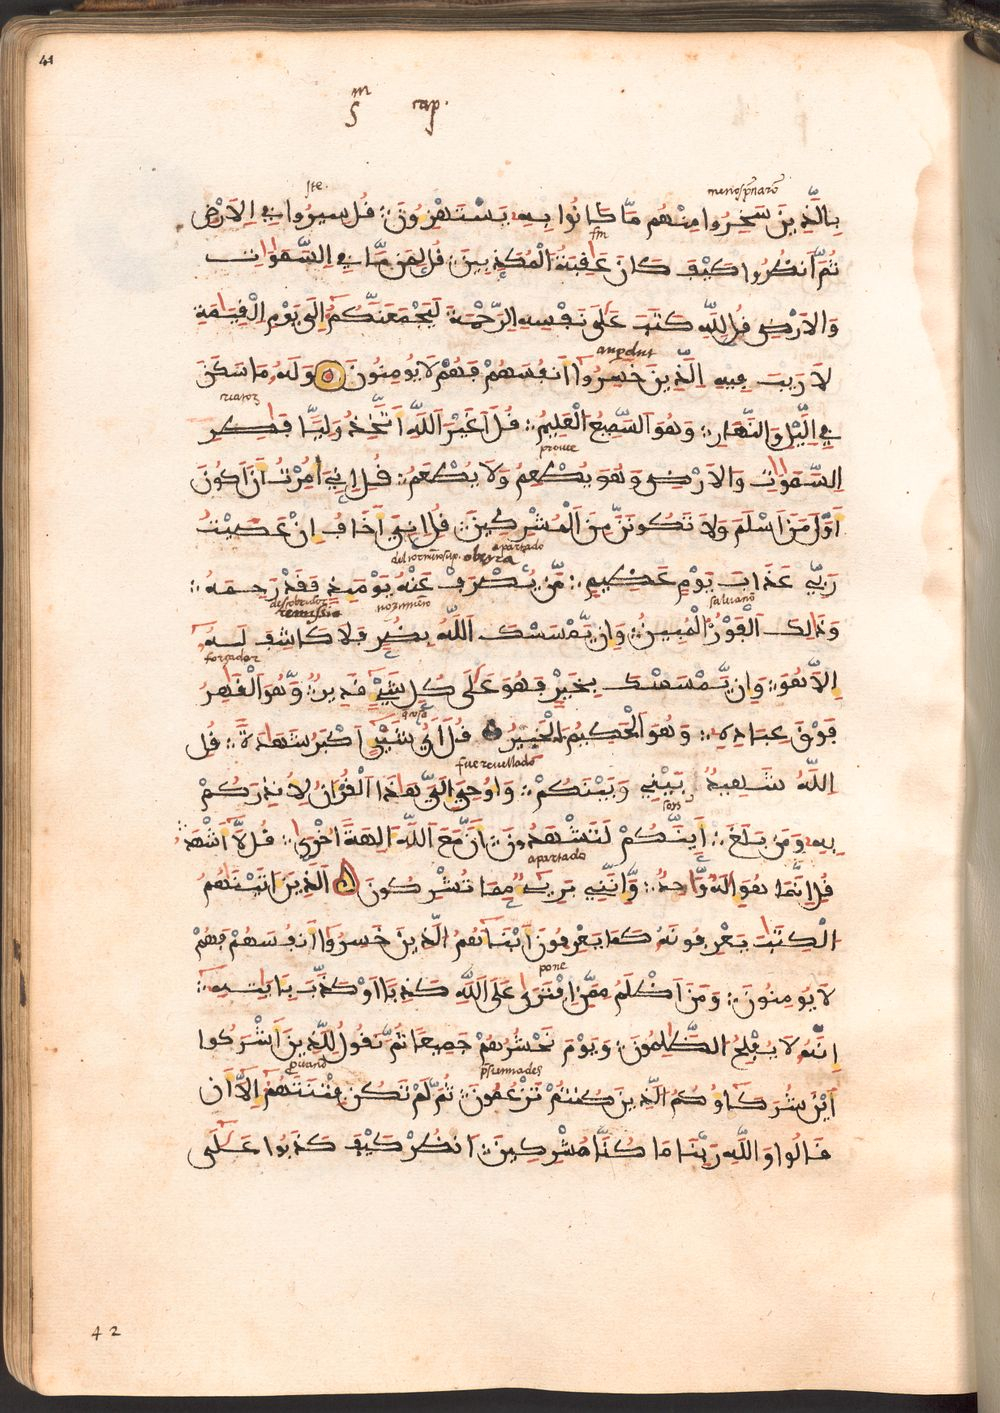 41
m
5 cap.
ste.
بِالَّذِينَ سَخِرُوا مِنْهُم مَّا كَانُوا بِهِ يَسْتَهْزِءُونَ ۞ قُل سِيرُوا فِي اِلَارْضِ
fin
ثُمَّ اَنظُرُوا كَيْفَ كَانَ عَٰقِبَةُ الْمُكَذِّبِينَ ۞ قُل لِّمَن مَّا فِي اِلسَّمَٰوَٰتِ
وَالَارْضِ قُل لِلَّهِ كَتَبَ عَلَىٰ نَفْسِهِ اِلرَّحْمَةَ لَيَجْمَعَنَّكُمُ إِلَىٰ يَوْمِ اِلْقِيَٰمَةِ
لَا رَيْبَ فِيهِ اِلَّذِينَ خَسِرُوا أَنفُسَهُمْ فَهُمْ لَا يُومِنُونَ وَلَهُ مَا سَكَنَ
فِي اِلَّيْلِ وَالنَّهَارِ ۞ وَهُوَ اَلسَّمِيعُ الْعَلِيمُ ۞ قُلَ اَغَيْرَ اَللَّهِ أَتَّخِذُ وَلِيّٗا فَاطِرِ
اِلسَّمَٰوَٰتِ وَالَارْضِ وَهُوَ يُطْعِمُ وَلَا يُطْعَمُ ۞ قُل اِنِّيَ أُمِرْتُ أَنَ اَكُونَ
أَوَّلَ مَنَ اَسْلَمَ وَلَا تَكُونَنَّ مِنَ اَلْمُشْرِكِينَ ۞ قُل اِنِّيَ أَخَافُ إِنْ عَصَيْتُ
apartado
رَبِّي عَذَابَ يَوْمٍ عَظِيمٍ ۞ مَّن يُّصْرَفْ عَنْهُ يَوْمَئِذٍ فَقَدْ رَحِمَهُ ۞
وَذَٰلِكَ اَلْفَوْزُ الْمُبِينُ ۞ وَإِن يَّمْسَسْكَ اَللَّهُ بِضُرٍّ فَلَا كَاشِفَ لَهُ
إِلَّا هُوَ ۞ وَإِن يَّمْسَسْكَ بِخَيْرٍ فَهُوَ عَلَىٰ كُلِّ شَيْءٍ قَدِيرٌ ۞ وَهُوَ اَلْقَاهِرُ
فَوْقَ عِبَادِهِ ۞ وَهُوَ اَلْحَكِيمُ الْخَبِيرُ قُلَ اَيُّ شَيْءٍ اَكْبَرُ شَهَٰدَةٗ ۞ قُلِ
fue revellado
اِللَّهُ شَهِيدٌ بَيْنِي وَبَيْنَكُمْ ۞ وَأُوحِيَ إِلَيَّ هَٰذَا اَلْقُرْءَانُ لِأُنذِرَكُمْ
بِهِ وَمَن بَلَغَ ۞ أَئِنَّكُمْ لَتَشْهَدُونَ أَنَّ مَعَ اَللَّهِ ءَالِهَةً اخْرَىٰ ۞ قُل لَّا أَشْهَدُ
apartado
قُل اِنَّمَا هُوَ إِلَٰهٌ وَٰحِدٌ ۞ وَإِنَّنِي بَرِيءٌ مِّمَّا تُشْرِكُونَ اَلَّذِينَ ءَاتَيْنَٰهُمُ
اُلْكِتَٰبَ يَعْرِفُونَهُ كَمَا يَعْرِفُونَ أَبْنَاءَهُمُ اُلَّذِينَ خَسِرُوا أَنفُسَهُمْ فَهُمْ
pone
لَا يُومِنُونَ ۞ وَمَنَ اَظْلَمُ مِمَّنِ اِفْتَرَىٰ عَلَى اَللَّهِ كَذِبًا اَوْ كَذَّبَ بِـَٔايَٰتِهِ ۞
إِنَّهُ لَا يُفْلِحُ الظَّٰلِمُونَ ۞ وَيَوْمَ نَحْشُرُهُمْ جَمِيعًا ثُمَّ نَقُولُ لِلَّذِينَ أَشْرَكُوا
أَيْنَ شُرَكَاؤُكُمُ الَّذِينَ كُنتُمْ تَزْعُمُونَ ۞ ثُمَّ لَمْ تَكُن فِتْنَتَهُمُ إِلَّا أَن
قَالُوا وَاللَّهِ رَبِّنَا مَا كُنَّا مُشْرِكِينَ ۞ اَنظُرْ كَيْفَ كَذَبُوا عَلَىٰ
42